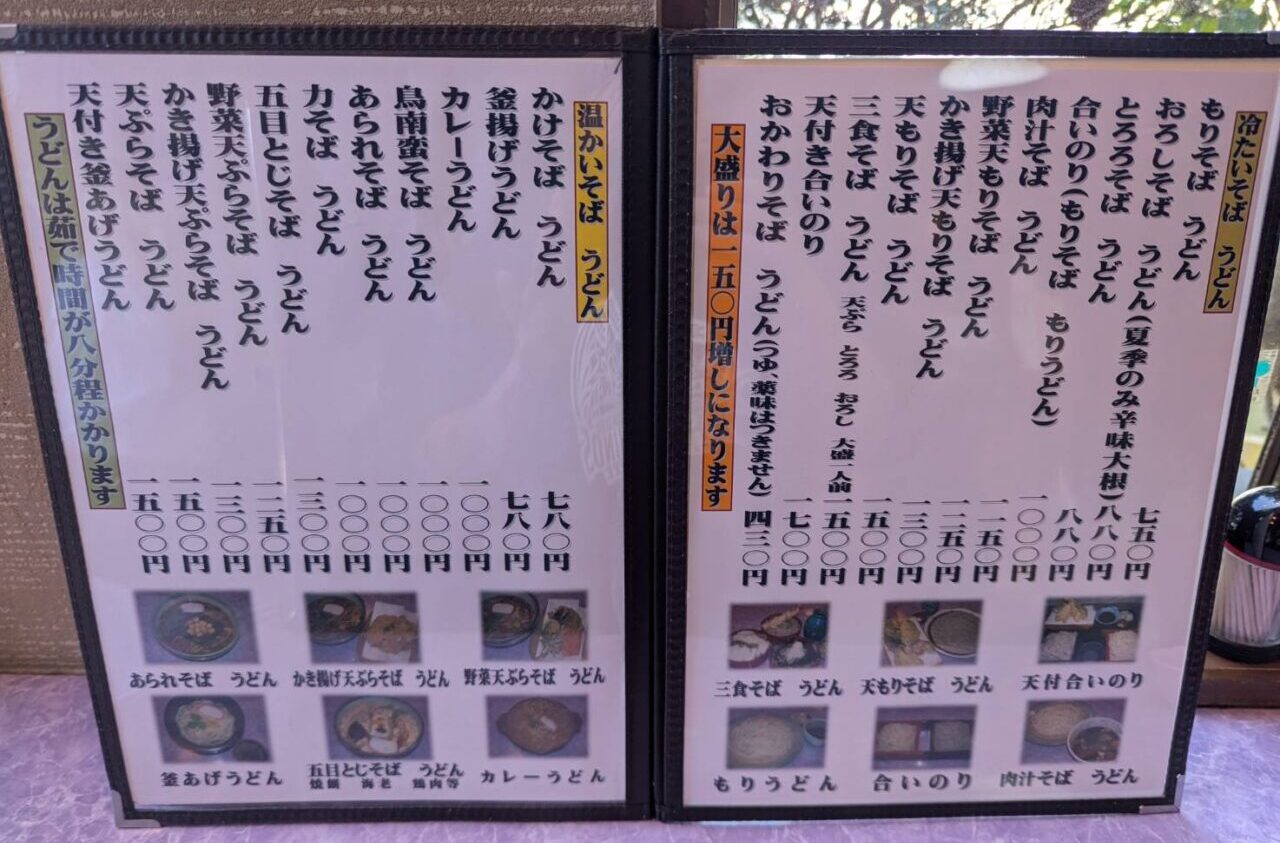 冷たいそば うどん
もりそば うどん 七五〇円
おろしそば うどん(夏季のみ辛味大根) 八八〇円
とろろそば うどん 八八〇円
合いのり(もりそば もりうどん) 一〇〇〇円
肉汁そば うどん 一一五〇円
野菜天もりそば うどん 一二五〇円
かき揚げ天もりそば うどん 一三〇〇円
天もりそば うどん 一五〇〇円
三食そば うどん 天ぷら とろろ おろし 大盛一人前 一五〇〇円
天付き合いのり 一七〇〇円
おかわりそば うどん(つゆ、薬味はつきません) 四三〇円
大盛りは一五〇円増しになります
三食そば うどん
天もりそば うどん
天付合いのり
もりうどん
合いのり
肉汁そば うどん
温かいそば うどん
かけそば うどん 七八〇円
釜揚げうどん 七八〇円
カレーうどん 一〇〇〇円
鳥南蛮そば うどん 一〇〇〇円
あられそば うどん 一〇〇〇円
力そば うどん 一〇〇〇円
五目とじそば うどん 一三〇〇円
野菜天ぷらそば うどん 一二五〇円
かき揚げ天ぷらそば うどん 一三〇〇円
天ぷらそば うどん 一五〇〇円
天付き釜あげうどん 一五〇〇円
うどんは茹で時間が八分程かかります
あられそば うどん
かき揚げ天ぷらそば うどん
野菜天ぷらそば うどん
釜あげうどん
五目とじそば うどん
焼餅 海老 鶏肉等
カレーうどん